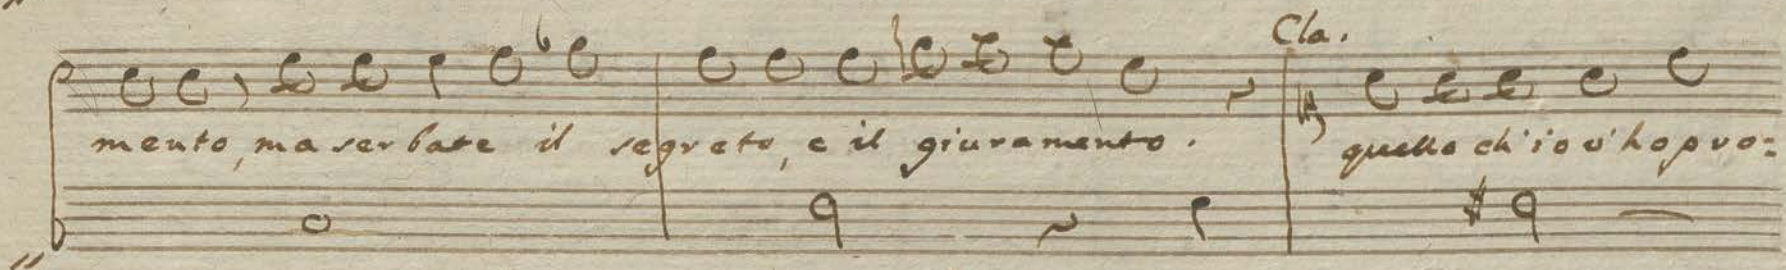 Cla.
mento, ma serbate il segreto, e il giuramento. quello ch'io v'ho pro=